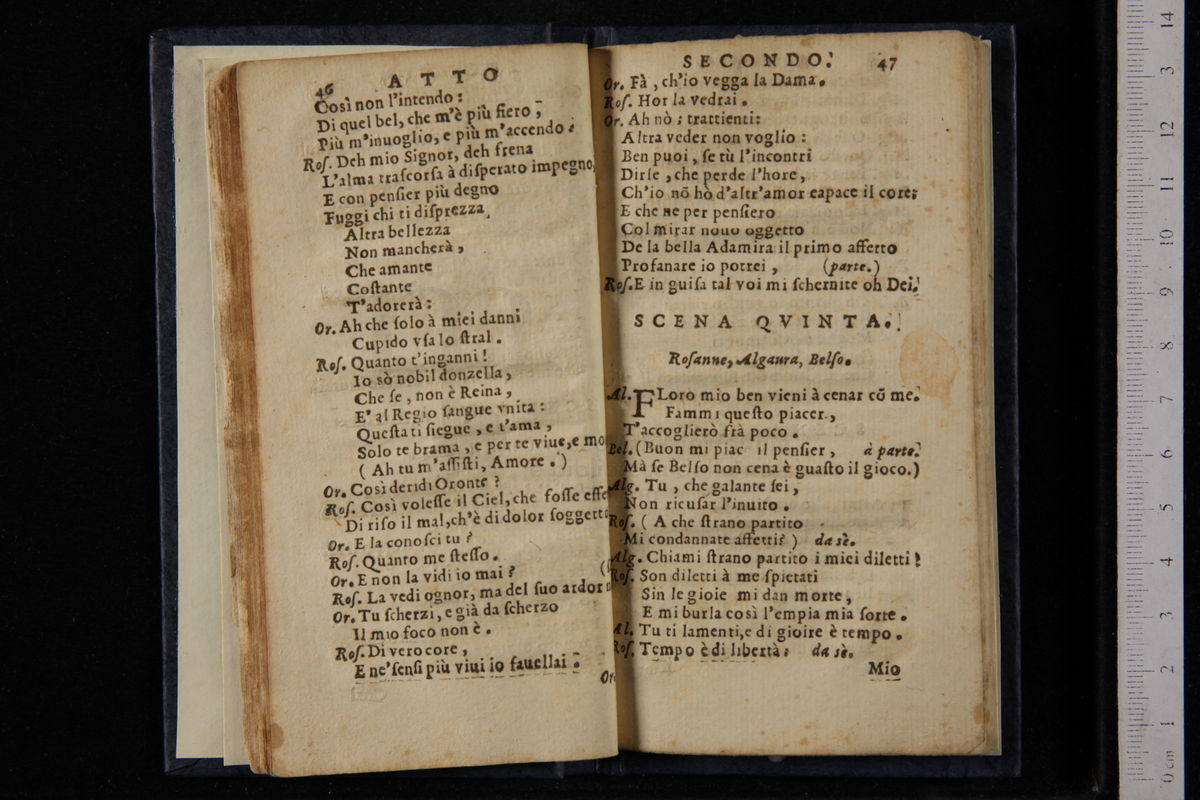 46 ATTO
Così non l'intendo:
Di quel bel, che m'è più fiero,
Più m'inuoglio, e più m'accendo:
Roſ. Deh mio Signor, deh frena
L'alma traſcorſa à diſperato impegno,
E con penſier più degno
Fuggi chi ti diſprezza,
Altra bellezza
Non mancherà,
Che amante
Coſtante
T'adorerà:
Or. Ah che ſolo à miei danni
Cupido vſa lo ſtral.
Roſ. Quanto t'inganni!
Io sò nobil donzella,
Che ſe, non è Reina,
E' al Regio ſangue vnita:
Queſta ti ſiegue, e t'ama,
Solo te brama, e per te viue, e mo
(Ah tu m'aſſiſti, Amore.)
Or. Così deridi Oronte?
Roſ. Così voleſſe il Ciel, che foſſe eſſe
Di riſo il mal, ch'è di dolor ſoggett
Or. E la conoſci tu?
Roſ. Quanto me ſteſſo.
Or. E non la vidi io mai?
Roſ. La vedi ognor, ma del ſuo ardor
Or. Tu ſcherzi, e già da ſcherzo
Il mio foco non è.
Roſ. Di vero core,
E ne'ſenſi più viui io fauellai.
Or
SECONDO. 47
Or. Fà, ch'io vegga la Dama.
Roſ. Hor la vedrai.
Or. Ah nò; trattienti:
Altra veder non voglio:
Ben puoi, ſe tù l'incontri
Dirle, che perde l'hore,
Ch'io nõ hò d'altr'amor capace il core;
E che ne per penſiero
Col mirar nouo oggetto
De la bella Adamira il primo affetto
Profanare io potrei, (parte.)
Roſ. E in guiſa tal voi mi ſchernite oh Dei.
SCENA QVINTA.
Roſanne, Algaura, Belſo.
Al. FLoro mio ben vieni à cenar cõ me.
Fammi queſto piacer,
T'accoglierò frà poco.
Bel. (Buon mi piac il penſier, à parte.
Mà ſe Belſo non cena è guaſto il gioco.)
Alg. Tu, che galante ſei,
Non ricuſar l'inuito.
Roſ. (A che ſtrano partito
Mi condannate affetti?) da sè.
Alg. Chiami ſtrano partito i miei diletti!
Roſ. Son diletti à me ſpietati
Sin le gioie mi dan morte,
E mi burla così l'empia mia ſorte.
Al. Tu ti lamenti, e di gioire è tempo.
Roſ. Tempo è di libertà: da sè.
Mio